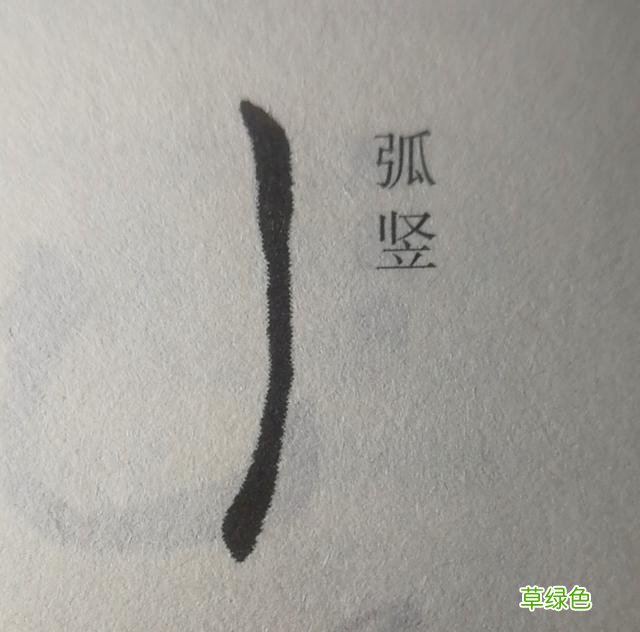 弧竖
草绿色